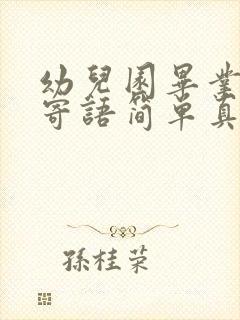 幼兒園畢業
寄語簡单真
孫桂荣